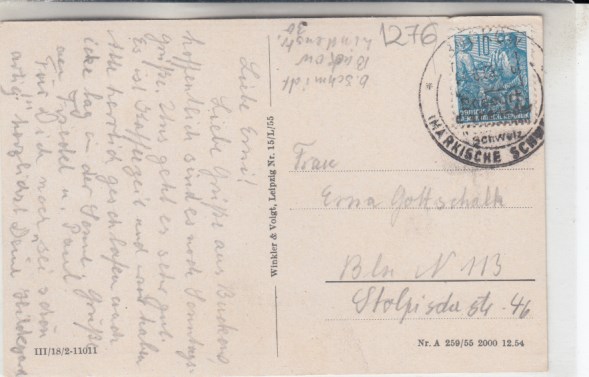 Liebe Erna!
Liebe Grüße aus Buckow,
hoffentlich sind es noch Sonntags-
grüße. Uns geht es sehr gut.
Es ist Kaffeezeit und wir haben
alle herrlich geschlafen nach
der Sonne. Grüße
u. Paul
Für Dich noch sei schön
artig herzlichst Deine Hildegard
III/18/2-11011
O. Schmidt
Buckow
Lindenstr.
30
1276
Winkler & Voigt, Leipzig Nr. 15/L/55
10
Schweiz
(MÄRKISCHE SCHW
Frau
Erna Gottschalk
Bln N 113
Stolpische Str. 46
Nr. A 259/55 2000 12.54